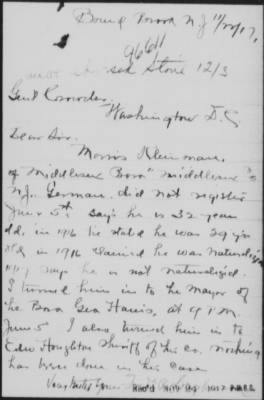 Bound Brook N J 11/20/17,
96611
sed Stone 12/3
Genl Crowder,
Washington D.C.
Dear Sir.
Morris Kleinman.
of Middlesex Boro "Middlesex Co
N.J. German. did not register
June 5th. Says he is 32 years
old, in 1916 he stated he was 39 yrs
old in 1916 claimed he was naturalized
1917 says he is not naturalized.
I turned him in to the Mayor of
the Boro Geo Harris, at 9 P.M.
June 5 I also turned him in to
Edw Houghton Sheriff of his co. nothing
has been done in his case
Very Truly Yours
REC'D NOV 24 1917 P.M.G.O.